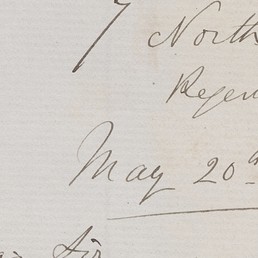 7 North
Regen
May 20th
Sir